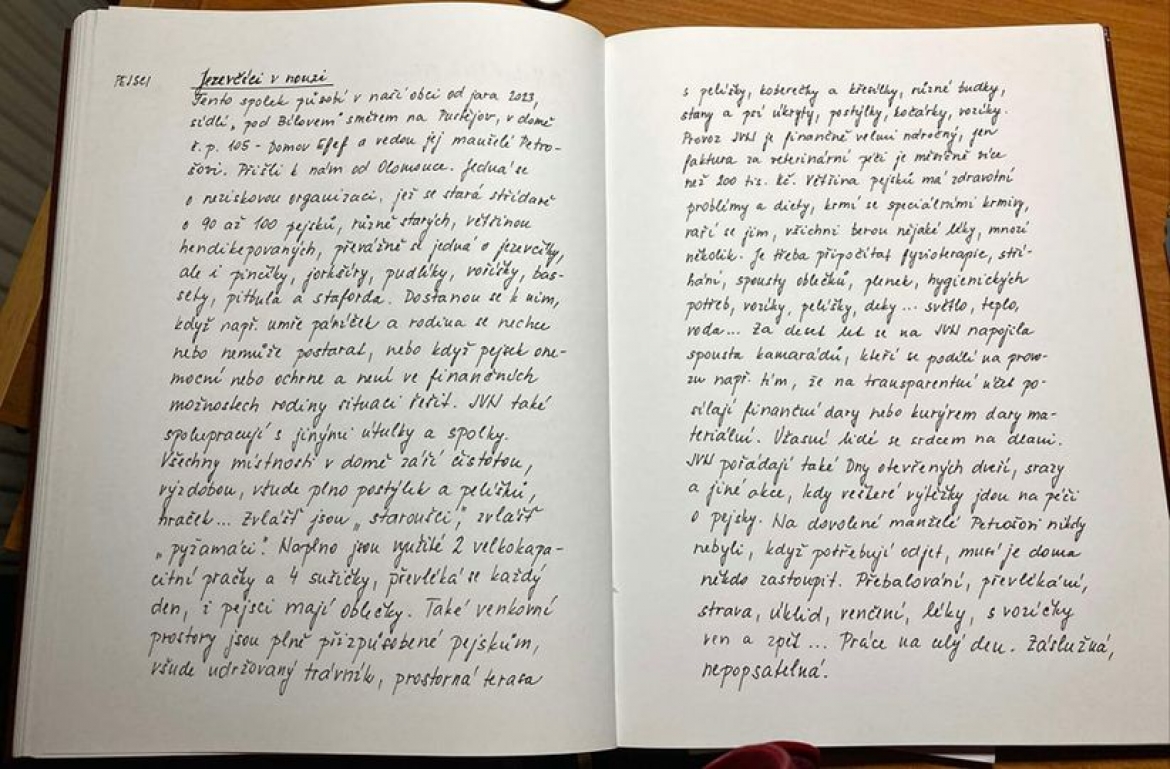 PEJSCI
Jezevčíci v nouzi
Tento spolek působí v naší obci od jara 2023,
sídlí „pod Bílovem" směrem na Pustějov, v domě
č. p. 105 - Domov Efef a vedou jej manželé Petro-
šovi. Přišli k nám od Olomouce. Jedná se
o neziskovou organizaci, jež se stará střídavě
o 90 až 100 pejsků, různě starých, většinou
hendikepovaných, převážně se jedná o jezevčíky,
ale i pinčíky, jorkšíry, pudlíky, voříšky, bas-
sety, pitbula a staforda. Dostanou se k nim,
když např. umře páníček a rodina se nechce
nebo nemůže postarat, nebo když pejsek one-
mocní nebo ochrne a není ve finančních
možnostech rodiny situaci řešit. JVN také
spolupracují s jinými útulky a spolky.
Všechny místnosti v domě září čistotou,
výzdobou, všude plno postýlek a pelíšků,
hraček... Zvlášť jsou „staroušci", zvlášť
„pyžamáci". Naplno jsou využité 2 velkokapa-
citní pračky a 4 sušičky, převléká se každý
den, i pejsci mají oblečky. Také venkovní
prostory jsou plně přizpůsobené pejskům,
všude udržovaný trávník, prostorná terasa
s pelíšky, koberečky a křesílky, různé budky,
stany a psí úkryty, postýlky, kočárky, vozíky.
Provoz JVN je finančně velmi náročný, jen
faktura za veterinární péči je měsíčně více
než 200 tis. Kč. Většina pejsků má zdravotní
problémy a diety, krmí se speciálními krmivy,
vaří se jim, všichni berou nějaké léky, mnozí
několik. Je třeba připočítat fyzioterapie, stří-
hání, spousty oblečků, plenek, hygienických
potřeb, vozíky, pelíšky, deky ... světlo, teplo,
voda... Za deset let se na JVN napojila
spousta kamarádů, kteří se podílí na provo-
zu např. tím, že na transparentní účet po-
sílají finanční dary nebo kurýrem dary ma-
teriální. Úžasní lidé se srdcem na dlani.
JVN pořádají také Dny otevřených dveří, srazy
a jiné akce, kdy veškeré výtěžky jdou na péči
o pejsky. Na dovolené manželé Petrošovi nikdy
nebyli, když potřebují odjet, musí je doma
někdo zastoupit. Přebalování, převlékání,
strava, úklid, venčení, léky, s vozíčky
ven a zpět ... Práce na celý den. Záslužná,
nepopsatelná.